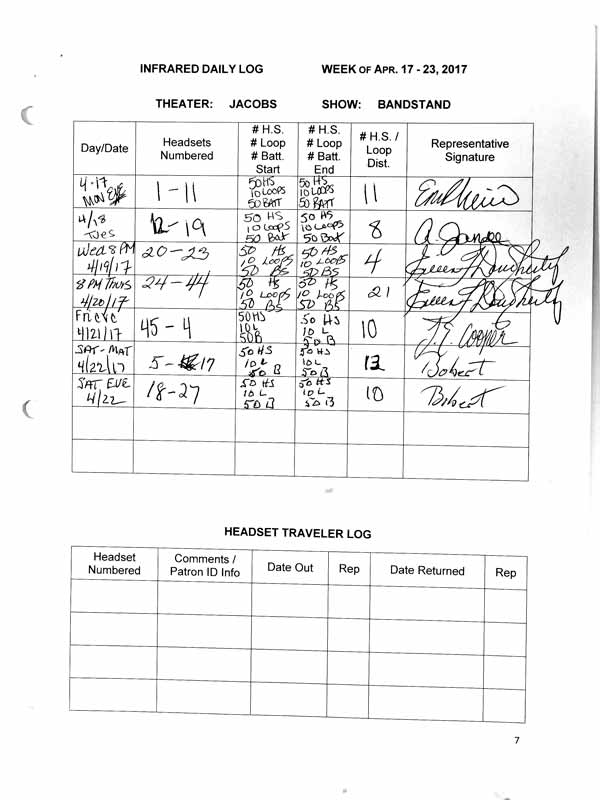 INFRARED DAILY LOG WEEK OF APR. 17 - 23, 2017
THEATER: JACOBS SHOW: BANDSTAND
Day/Date Headsets Numbered # H.S. # Loop # Batt. Start # H.S. # Loop # Batt. End # H.S. / Loop Dist. Representative Signature
4-17 MON EVE 1-11 50 HS 10 LOOPS 50 BATT 50 HS 10 LOOPS 50 BATT 11
4/18 Tues 12-19 50 HS 10 Loops 50 Bat 50 HS 10 Loops 50 Bat 8
Wed 8 PM 4/19/17 20-23 50 HS 10 Loops 50 BS 50 HS 10 Loops 50 BS 4 Eileen F Dougherty
8 PM Thurs 4/20/17 24-44 50 HS 10 Loops 50 BS 50 HS 10 Loops 50 BS 21 Eileen F Dougherty
Fri eve 4/21/17 45-4 50 HS 10 L 50 B 50 HS 10 L 50 B 10 J.E. Cooper
SAT-MAT 4/22/17 5-17 50 HS 10 L 50 B 50 HS 10 L 50 B 13 Bobert
SAT EVE 4/22 18-27 50 HS 10 L 50 B 50 HS 10 L 50 B 10 Bobert
HEADSET TRAVELER LOG
Headset Numbered Comments / Patron ID Info Date Out Rep Date Returned Rep
7